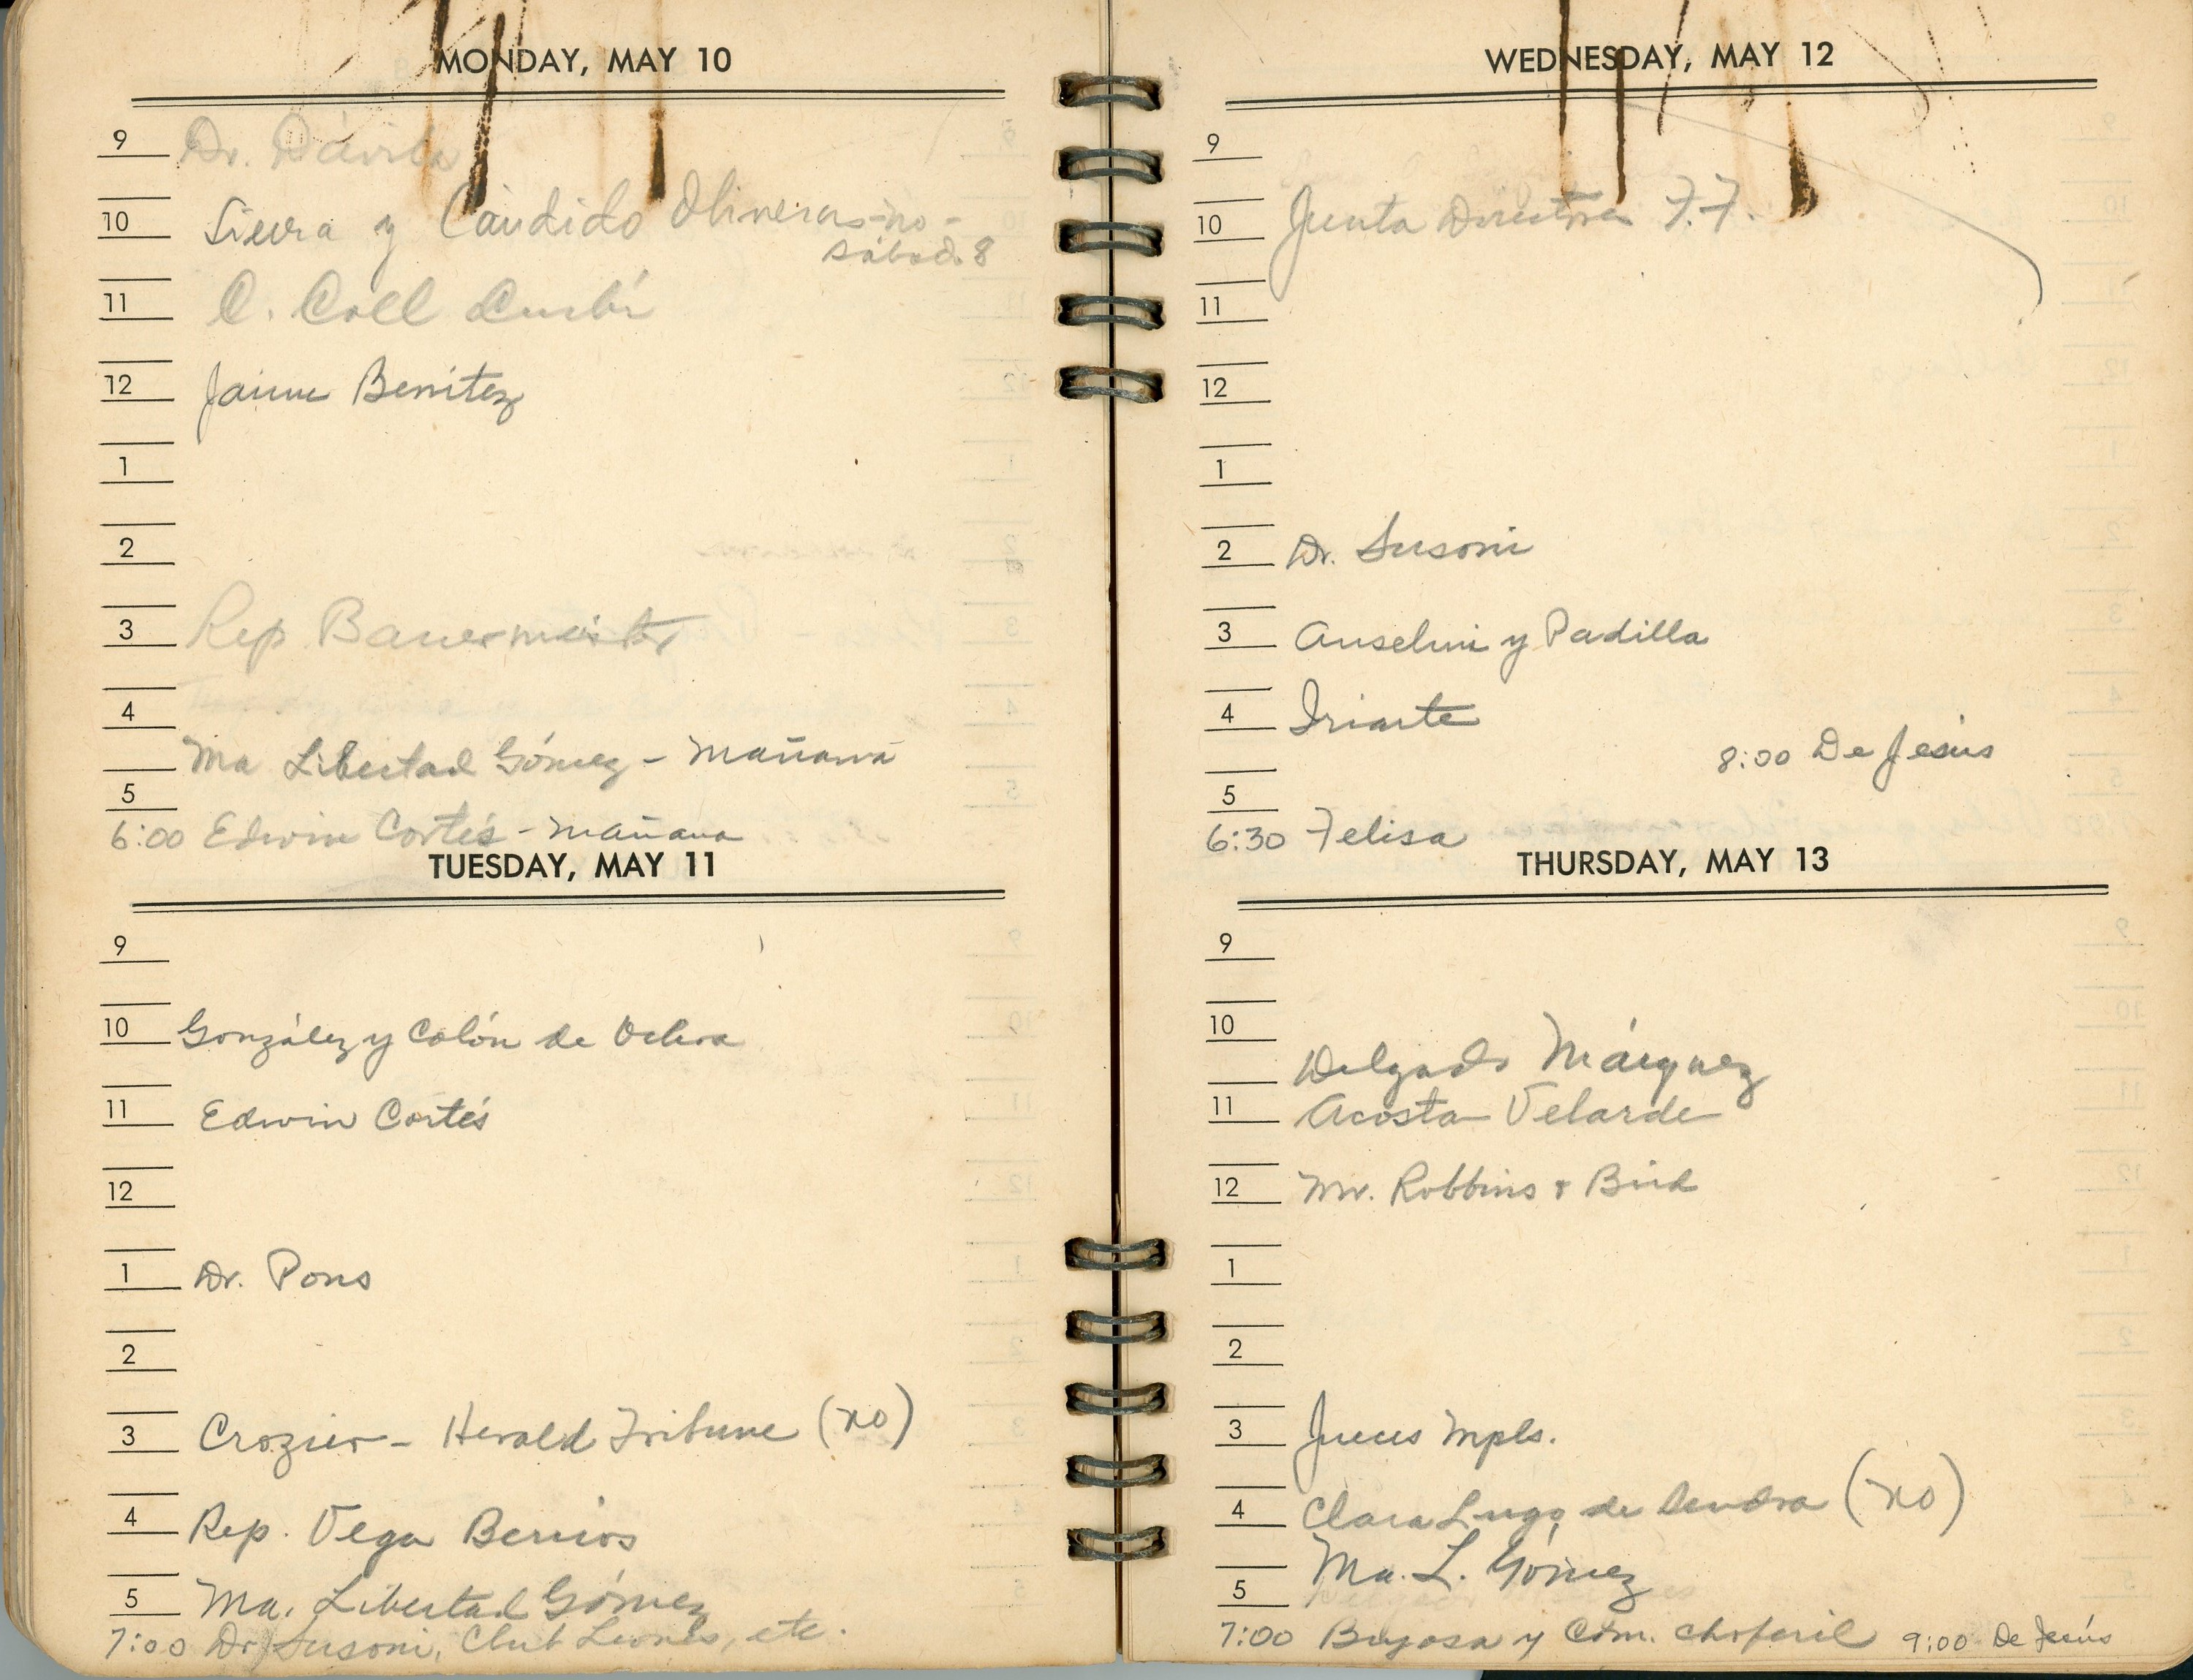 MONDAY, MAY 10
9 Dr. Dávila
10 Sierra y Candido Oliveras-no-
sábado 8
11 C. Coll Cuchí
12 Jaime Benítez
1
2
3 Rep Bauermeister
4
Ma Libertad Gómez - Mañana
5
6:00 Edwin Cortés - Mañana
TUESDAY, MAY 11
9
10 González y Colón de
11 Edwin Cortés
12
1 Dr. Pons
2
3 Crozier - Herald Tribune (no)
4 Rep. Vega Berríos
5 Ma. Libertad Gómez
7:00 Dr. Susoni, Club Leones, etc.
WEDNESDAY, MAY 12
9
10 Junta Directora F.F.
11
12
1
2 Dr. Susoni
3 Anselmi y Padilla
4 Iriarte
8:00 De Jesús
5
6:30 Felisa
THURSDAY, MAY 13
9
10
Delgado Márquez
11 Acosta Velarde
12 Mr. Robbins & Bird
1
2
3 Jueces Mpls.
4 Clara Lugo de Sendra (no)
5 Ma. L. Gómez
7:00 Bugosa y Com. choferil 9:00 De Jesús